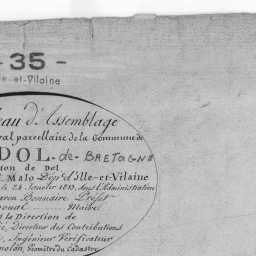 - 35 -
le-et-Vilaine
eau d'Assemblage
val parcellaire de la Commune de
DOL-de-BRETAGNE
ton de Dol
Malo Dép.t d'Ille-et-Vilaine
le 24 Janvier 1833, sous l'Administration
aron Bonnaire Préfet
Maire
la Direction de
directeur des Contributions
Ingénieur Vérificateur
Géomètre du Cadastre